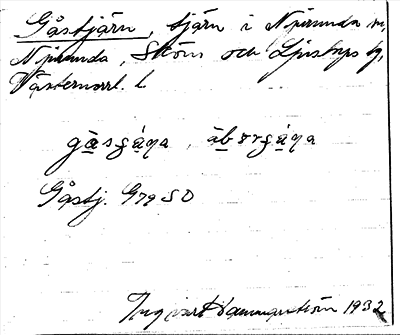 Gåstjärn, tjärn i Njurunda sn,
Njurunda, Sköns och Ljustorps tg,
Västernorrl. l
gåsʃạ́ṇa, åbørʃạ́ṇa
Gåstj. G79SO
Ingvar Hammarström 1932